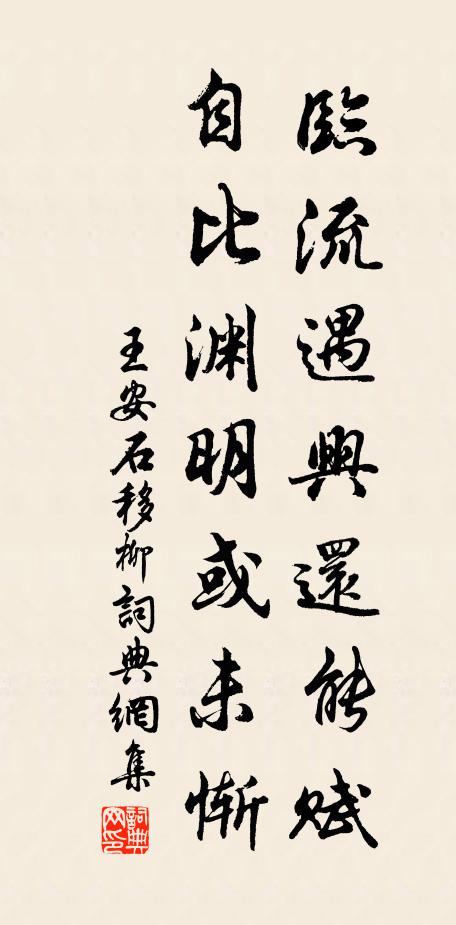 臨流遇興還能賦
自比淵明或未慚
王安石移柳詞典網集
詞典網印